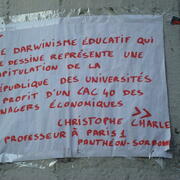 E DARWINISME ÉDUCATIF QUI
E DESSINE REPRÉSENTE UNE
APITULATION DE LA
ÉPUBLIQUE DES UNIVERSITÉS
PROFIT D'UN CAC 40 DES
NAGERS ÉCONOMIQUES >>
CHRISTOPHE CHARLE
PROFESSEUR À PARIS 1
PANTHÉON-SORBONN